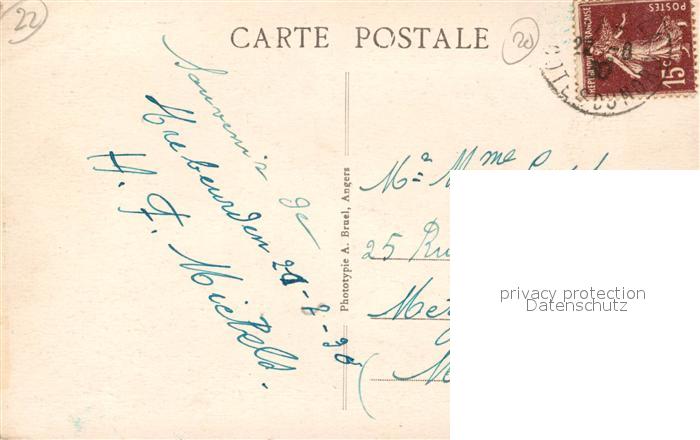 22
CARTE POSTALE
20
POSTES
REPUBLIQUE FRANÇAISE
15c
Souvenir de
Trebeurden 21-8-30
H. F. Mickels.
Phototypie A. Bruel, Angers
Mr Mme
25 Rue
privacy protection
Datenschutz